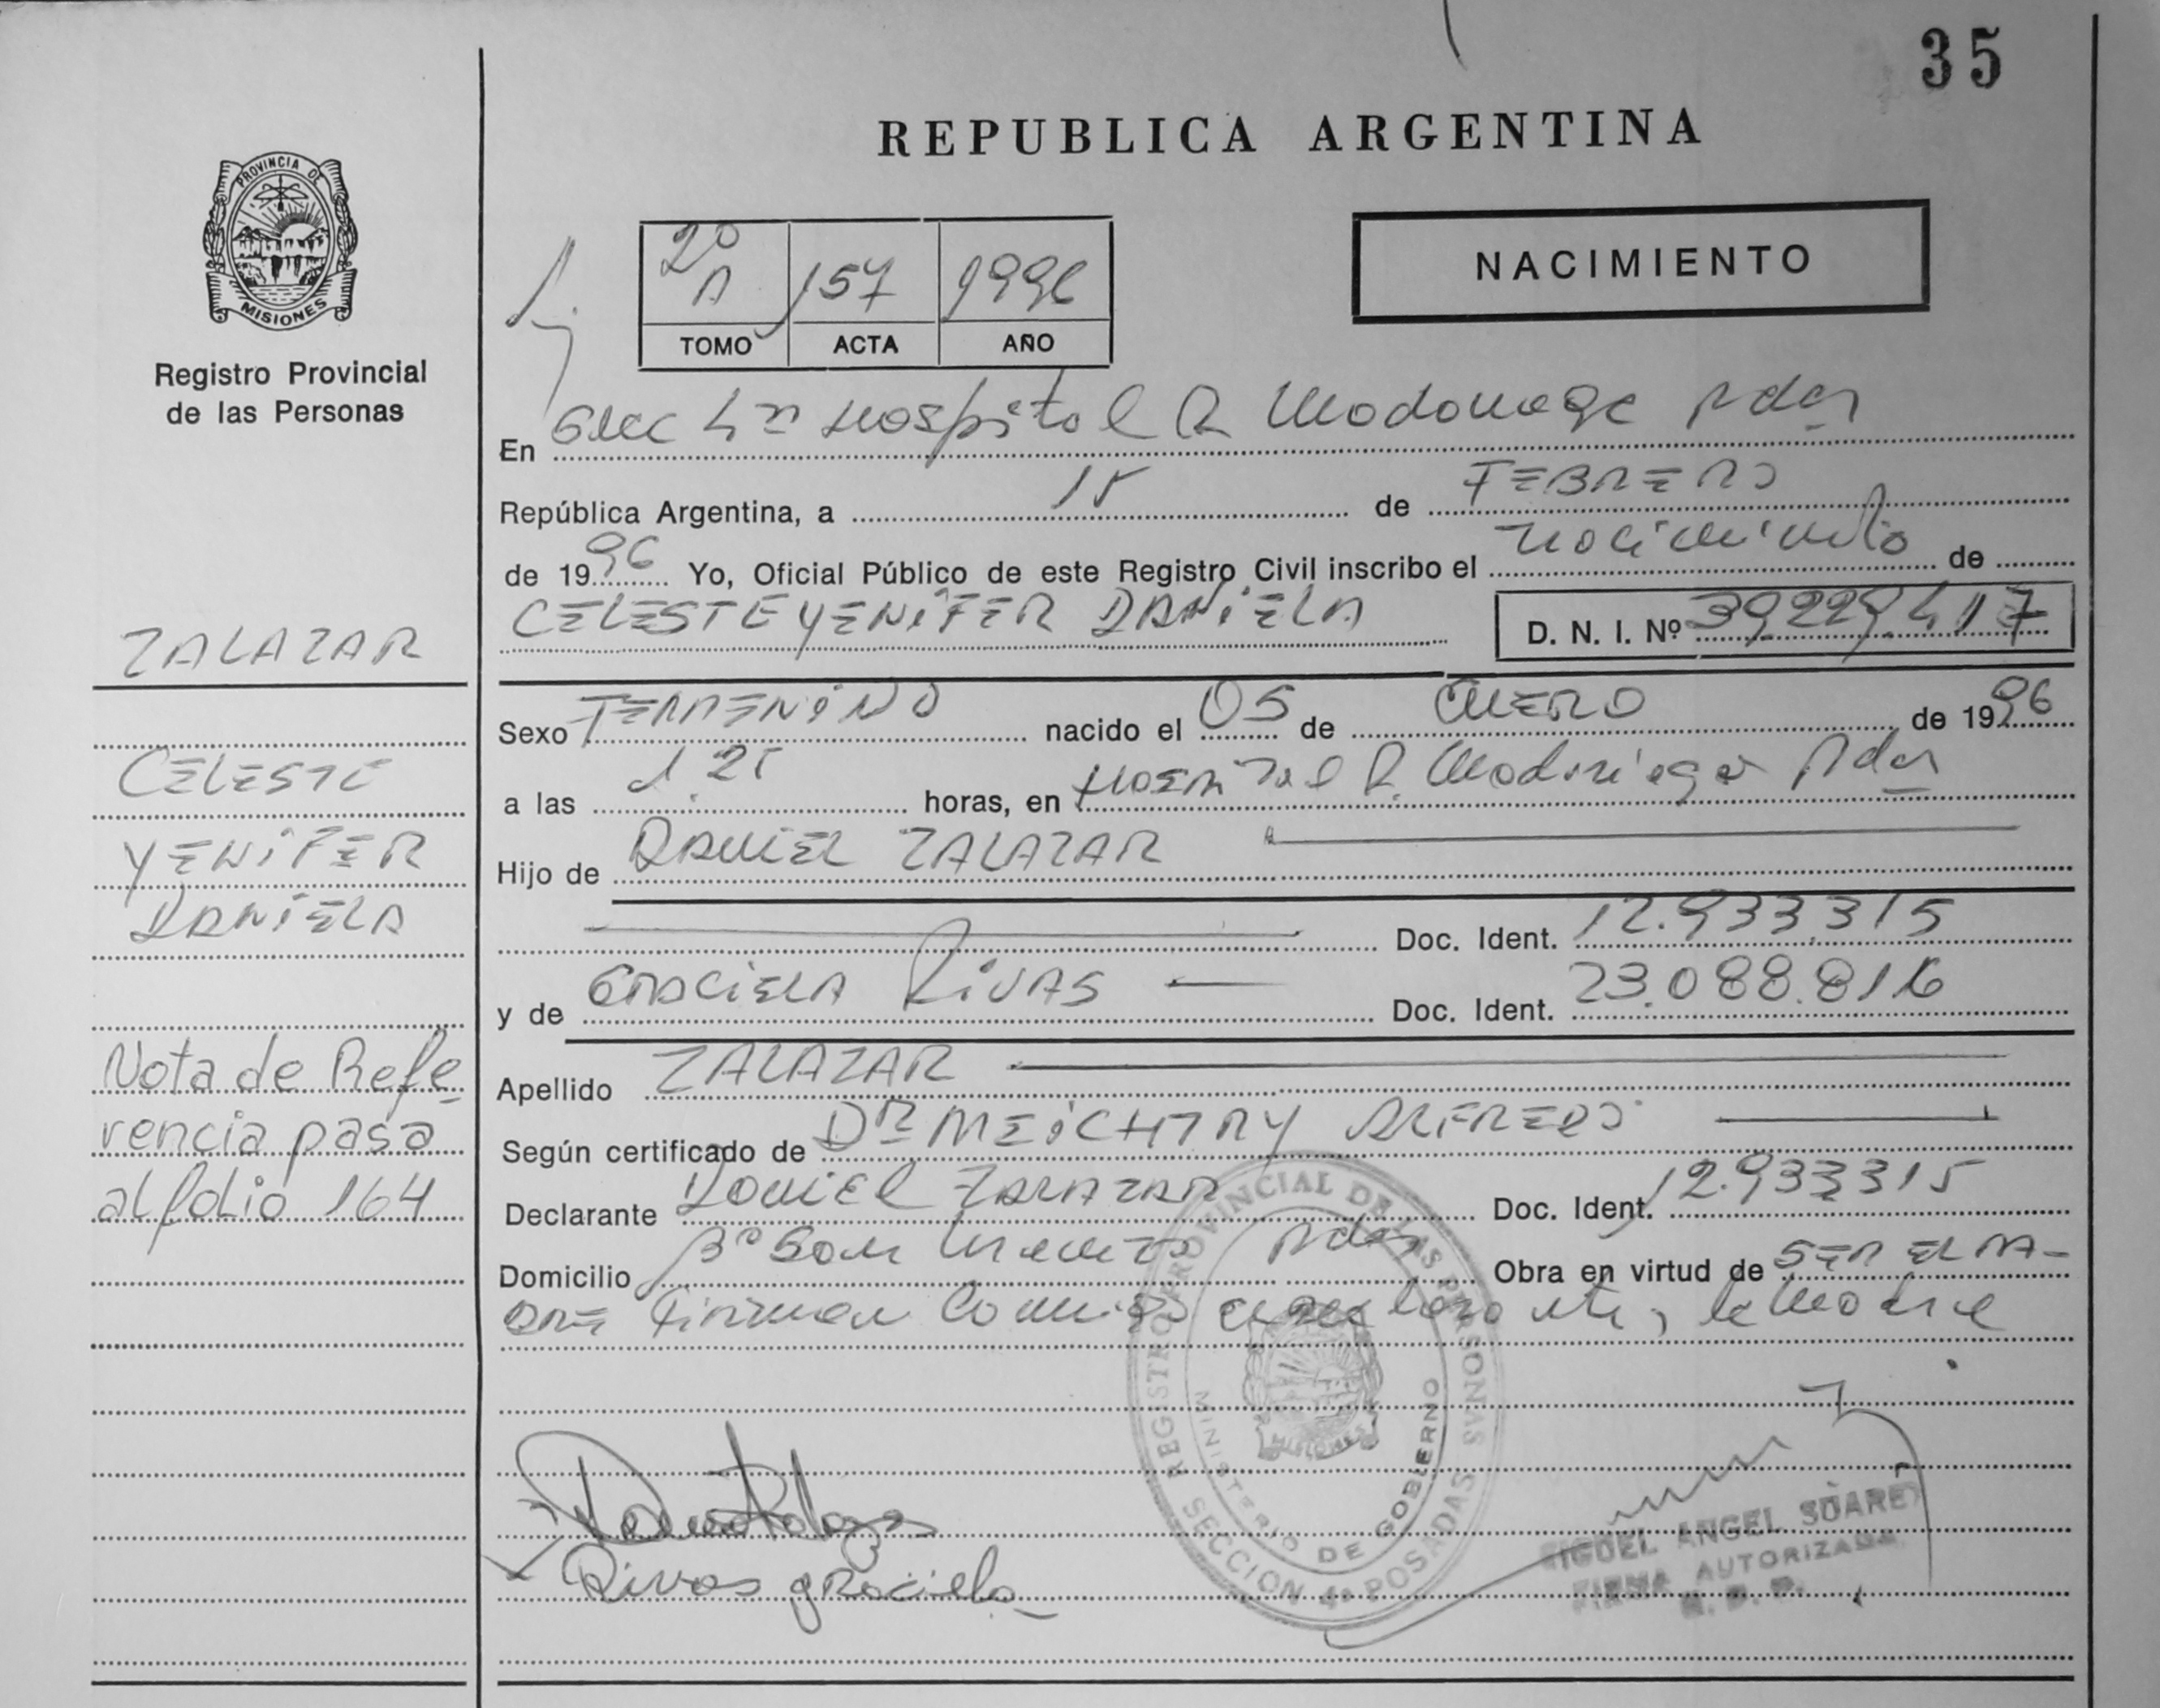 35
REPUBLICA ARGENTINA
PROVINCIA DE
MISIONES
Registro Provincial
de las Personas
2º A 157 1996
TOMO ACTA AÑO
NACIMIENTO
En Secc 4ª Hospital R Madariaga Pdas
República Argentina, a 15 de FEBRERO
de 1996 Yo, Oficial Público de este Registro Civil inscribo el nacimiento de
CELESTE YENIFER DANIELA D. N. I. Nº 39.229.417
ZALAZAR
Sexo FEMENINO nacido el 05 de ENERO de 1996
CELESTE
a las 1.25 horas, en Hospital R. Madariaga Pdas
YENIFER
Hijo de DANIEL ZALAZAR
DANIELA
Doc. Ident. 12.933.315
y de GRACIELA RIVAS Doc. Ident. 23.088.816
Nota de Refe-
rencia pasa
al folio 164
Apellido ZALAZAR
Según certificado de Dr MEICHTRY ALFREDO
Declarante DANIEL ZALAZAR Doc. Ident. 12.933315
Domicilio Bº San Pdas Obra en virtud de SER EL PA-
DRE Firman Conmigo la Madre
REGISTRO PROVINCIAL DE LAS PERSONAS
MINISTERIO DE GOBIERNO
MISIONES
SECCION 4ª POSADAS
Rivas graciela
MIGUEL ANGEL SUAREZ
FIRMA AUTORIZADA